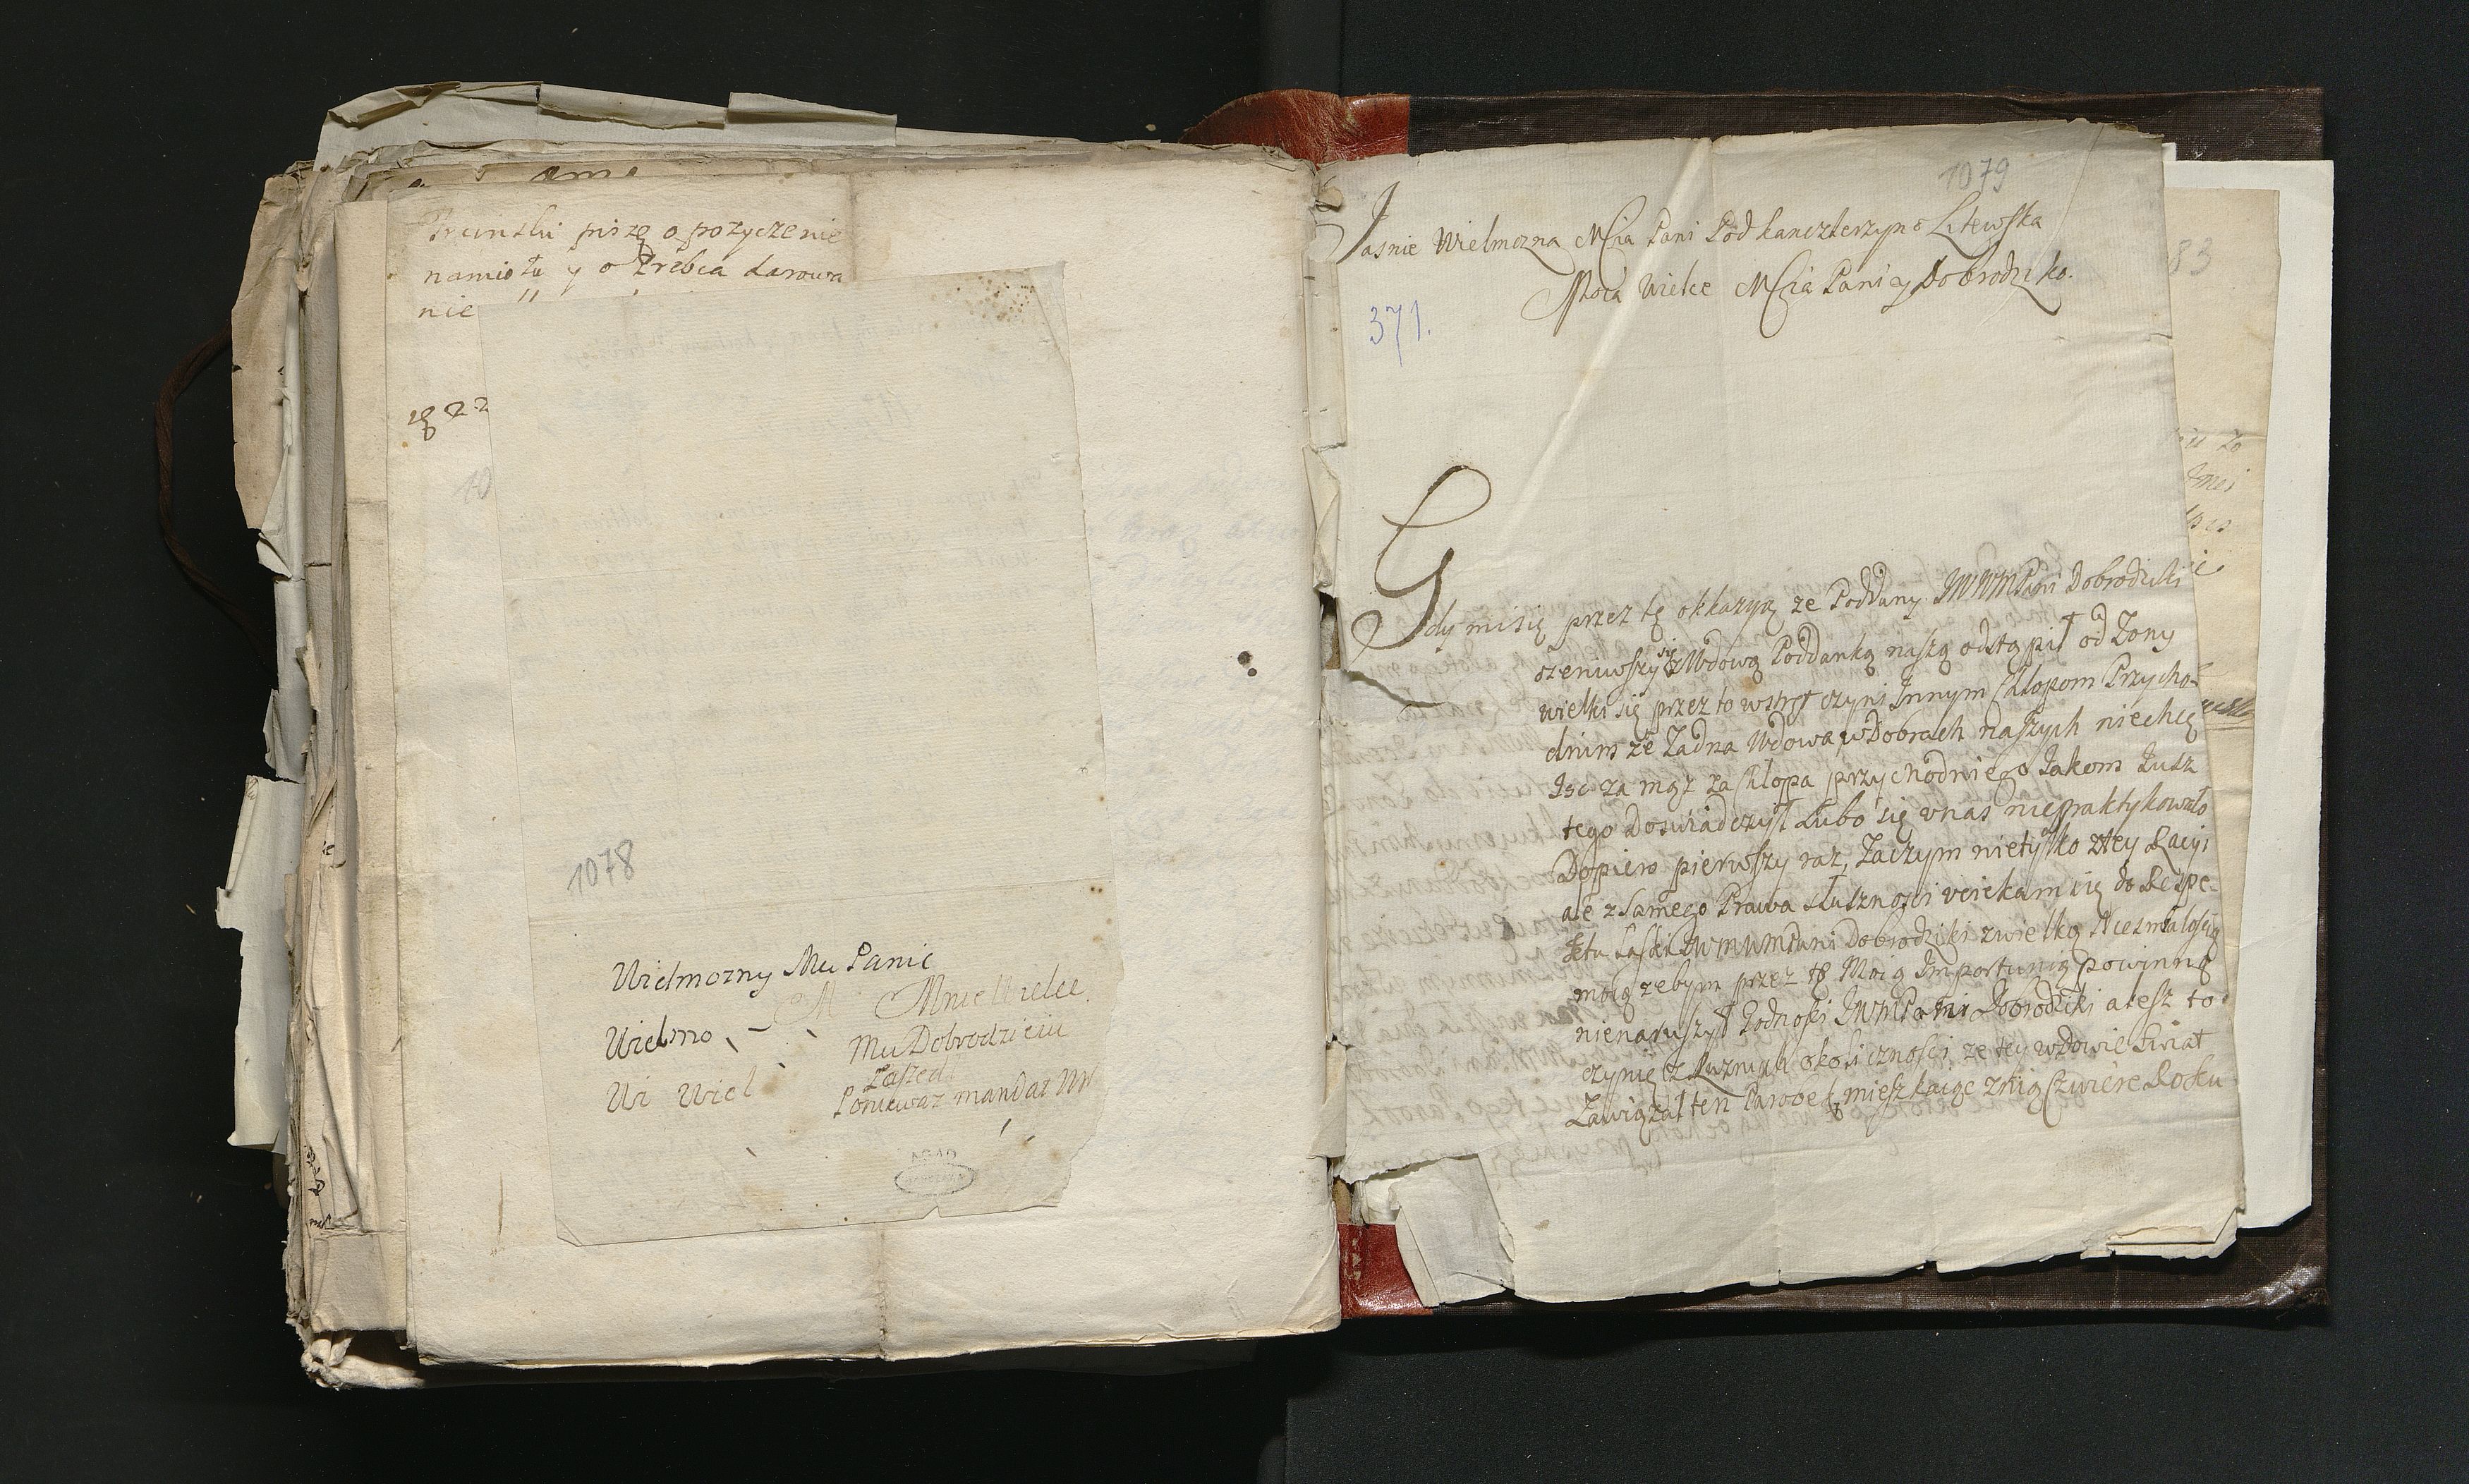 pisze o pozyczenie
namiotu y o Zrebca darowa
nie
1078
Wielmozny Mu Panie
M Mnie Wielce
Wielmo
Mu Dobrodzieiu
Zaszed
Wi Wiel
Poniewaz mandat
1079
Jasnie Wielmozna Mcia Pani Podkanclerzyno Litewska
Moia Wielce Mcia Pani y Dobrodziko.
371.
83
Gdy mi się przez tę okkazyą ze Poddany JWWMPani Dobrodziki
ozeniwszy się z Wdową Poddanką naszą odstąpił od Zony
wielki się przez to wstręt czyni Innym Chłopom Przycho-
dnim ze Zadna Wdowa w Dobrach naszych niechcę
Isc za mąz za Chłopa przychodniego Jakom Jusz
tego Doswiadczył Lubo się u nas niepraktykowało
Dopiero pierwszy raz, Zaczym nietylko z tey Racyi
ale z samego Prawa słusznosci uciekam się do Respe-
ktu Łaski Dobrodziki z wielką Niesmiałoscią
moią zebym przez tę Moię Importunię powinną
nienaruszył Godnosci Dobrodziki alesz to
czynię z Roznych okolicznosci ze tey wdowie Swiat
Zawiązał ten Parobek mieszkaiąc z nią Cźwierc Roku